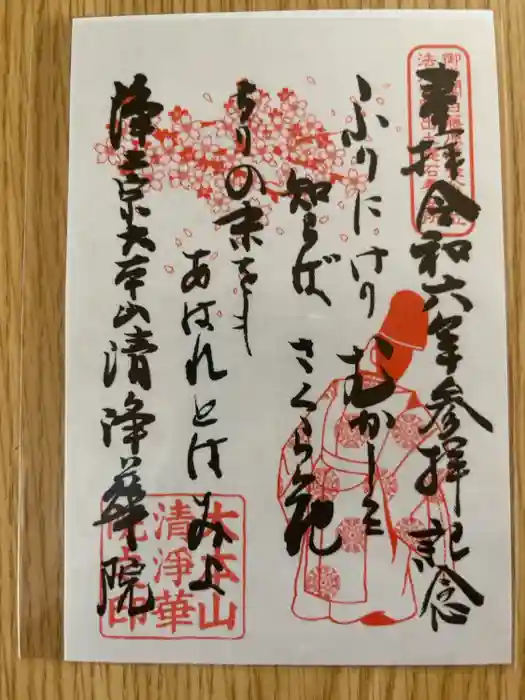 奉拝 令和六年参拝記念
ふりにけり むかしを
知らば さくら花
ちりの末をも
あはれとはみよ
浄土宗大本山清浄華院
大本山
清淨華
院之印